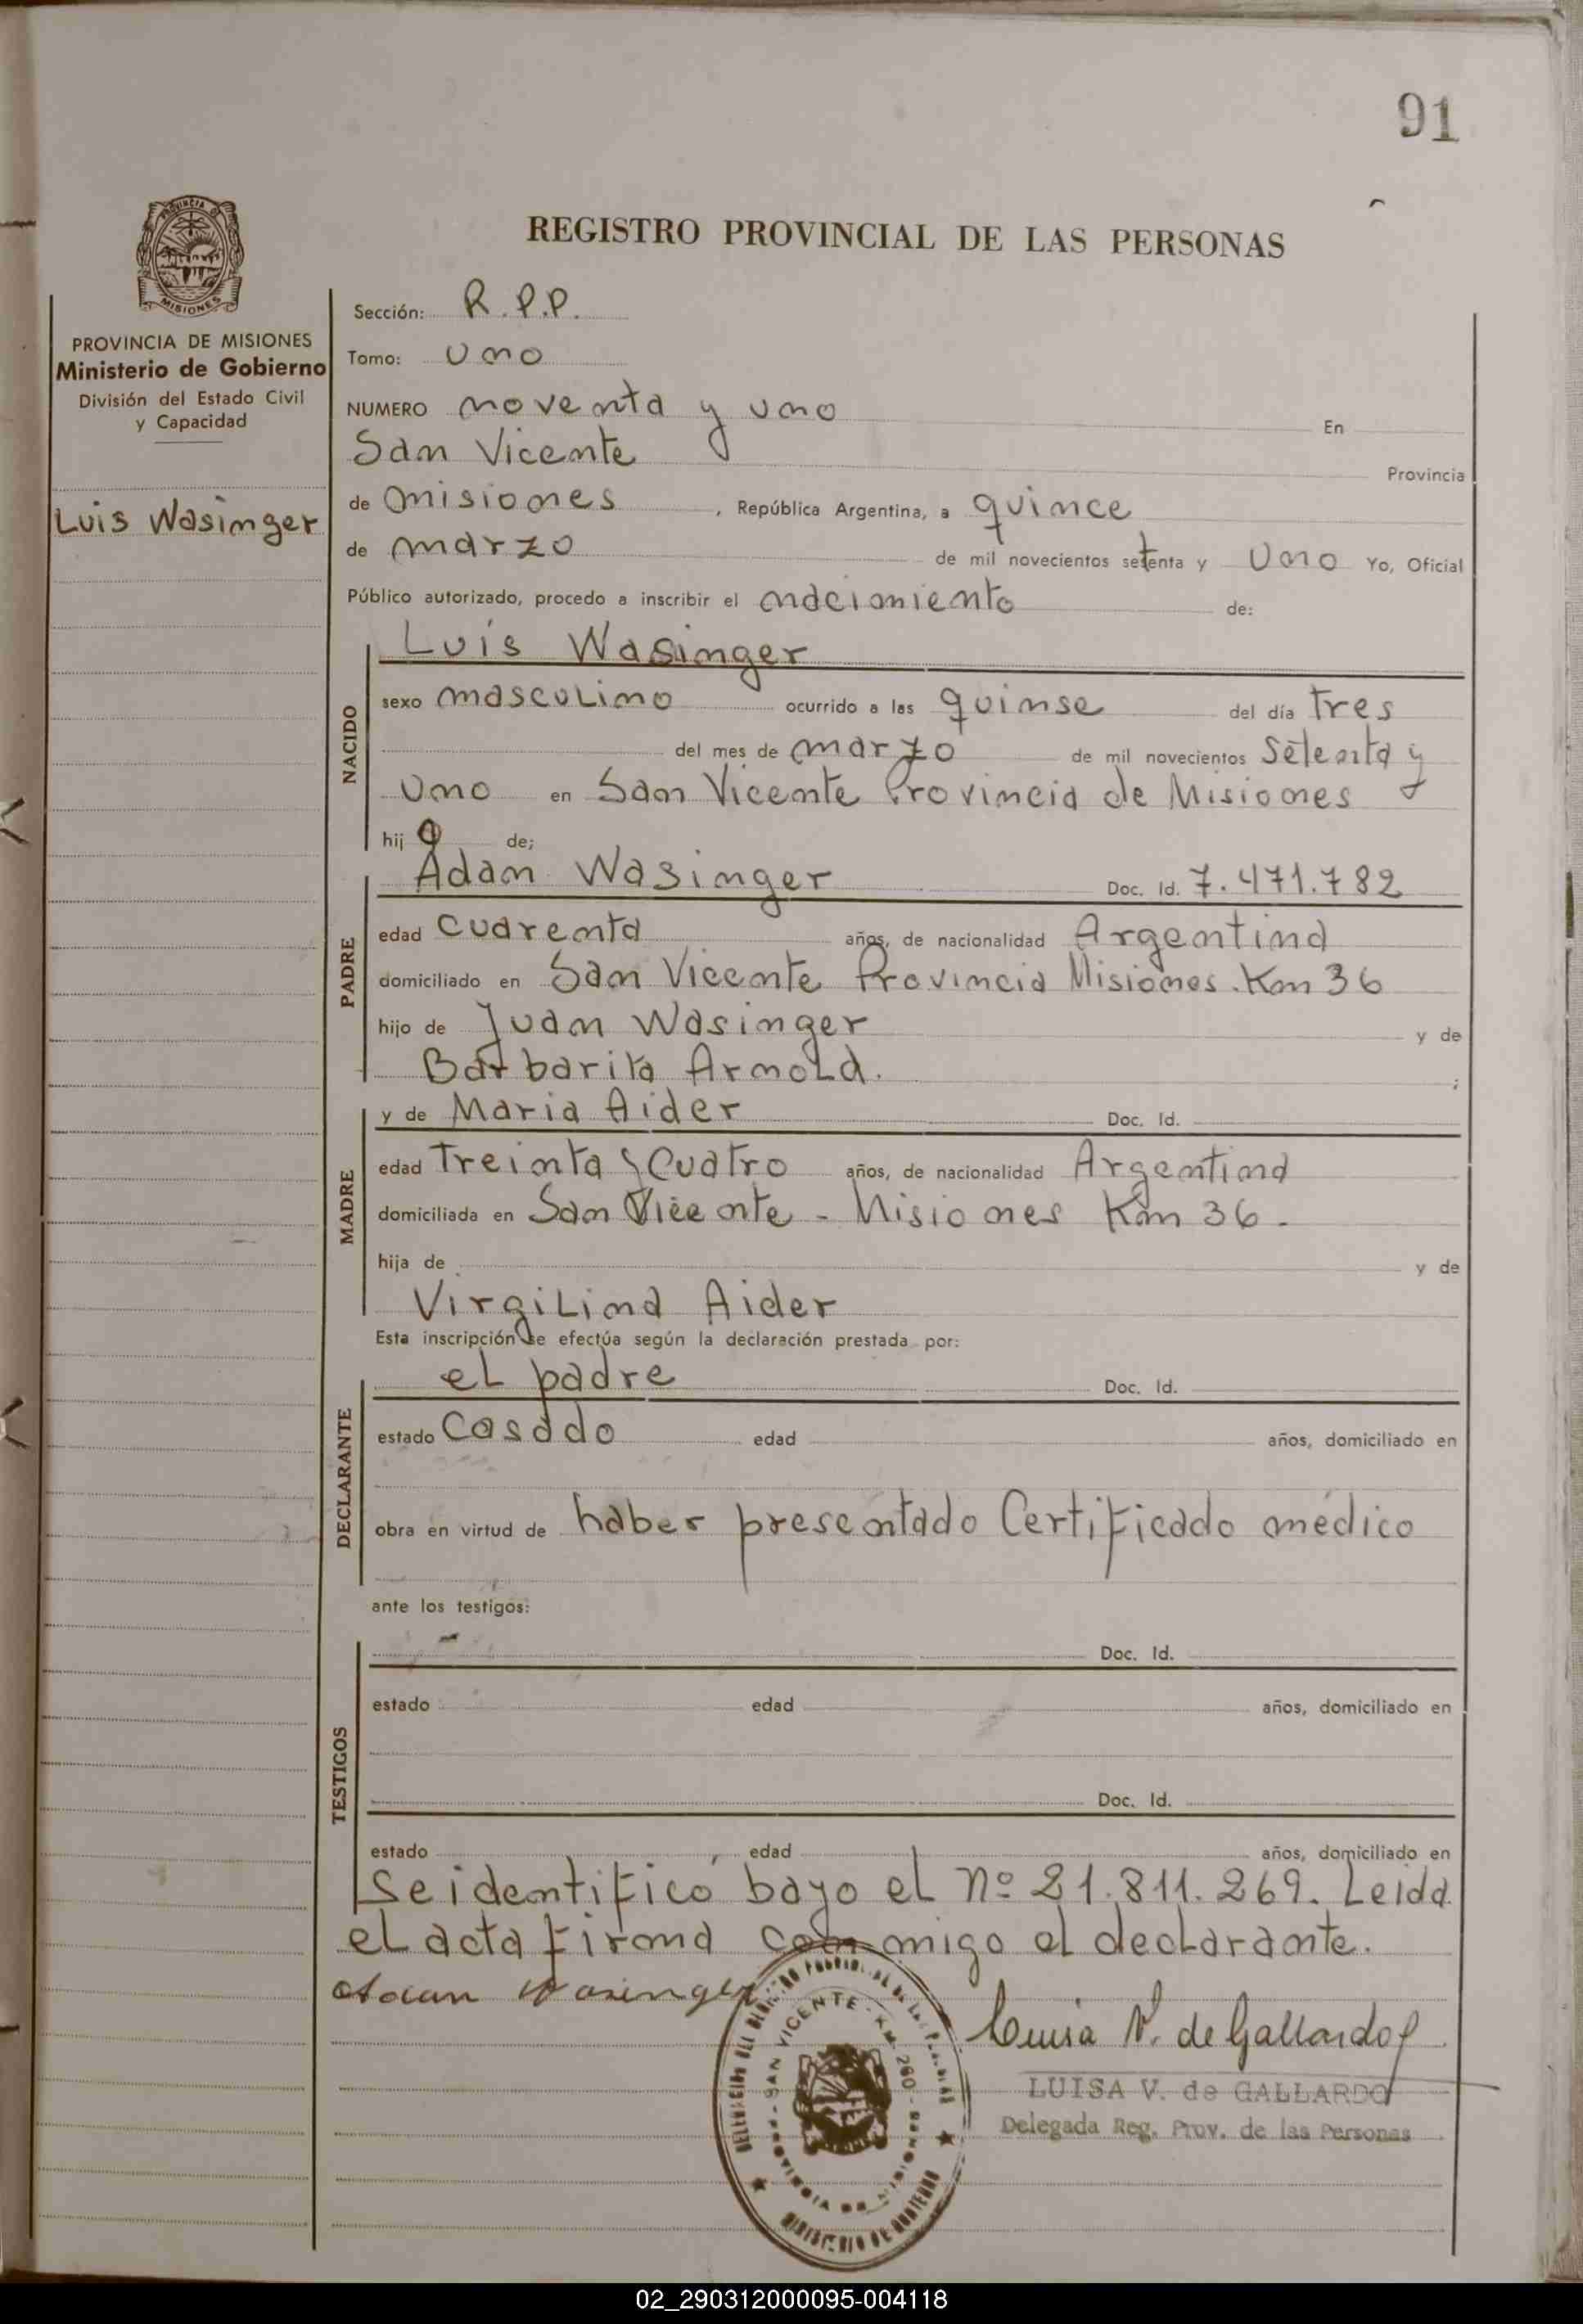 91
REGISTRO PROVINCIAL DE LAS PERSONAS
PROVINCIA DE MISIONES
Ministerio de Gobierno
División del Estado Civil
y Capacidad
Luis Wasinger
Sección: R.P.P.
Tomo: Uno
NUMERO noventa y uno En
San Vicente Provincia
de misiones, República Argentina, a quince
de marzo de mil novecientos setenta y Uno Yo, Oficial
Público autorizado, procedo a inscribir el nacimiento de:
NACIDO
Luis Wasinger
sexo masculino ocurrido a las quinse del día tres
del mes de marzo de mil novecientos Setenta y
Uno en San Vicente Provincia de Misiones
hijo de;
PADRE
Adam Wasinger Doc. Id. 7.471.782
edad Cuarenta años, de nacionalidad Argentina
domiciliado en San Vicente Provincia Misiones. Km 36
hijo de Juan Wasinger y de
Barbarita Arnold. ;
MADRE
y de Maria Aider Doc. Id.
edad Treinta y Cuatro años, de nacionalidad Argentina
domiciliada en San Vicente - Misiones Km 36.
hija de y de
Virgilina Aider
Esta inscripción se efectúa según la declaración prestada por:
DECLARANTE
el padre Doc. Id.
estado Casado edad años, domiciliado en
obra en virtud de haber presentado Certificado médico
ante los testigos:
TESTIGOS
Doc. Id.
estado edad años, domiciliado en
Doc. Id.
estado edad años, domiciliado en
Se identificó bayo el nº 21.811.269. Leida
el acta firma conmigo el declarante.
Adam Wasinger
Luisa V. de Gallardo
LUISA V. de GALLARDO
Delegada Reg. Prov. de las Personas
SAN VICENTE - KM 260 -
MINISTERIO DE GOBIERNO
02_290312000095-004118